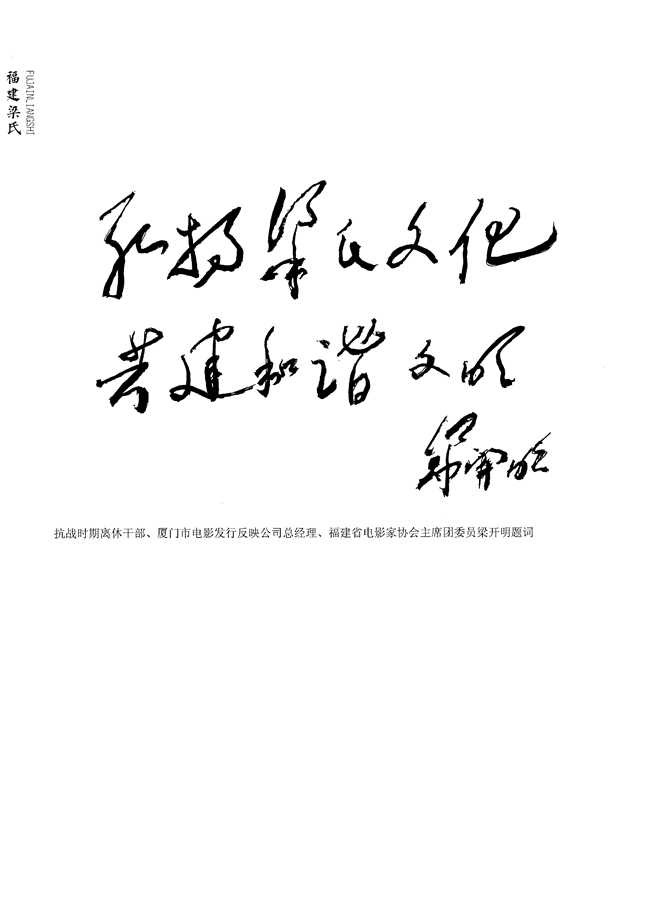 福建梁氏
FUJAINLIANGSHI
弘扬梁氏文化
共建和谐文明
梁开明
抗战时期离休干部、厦门市电影发行反映公司总经理、福建省电影家协会主席团委员梁开明题词